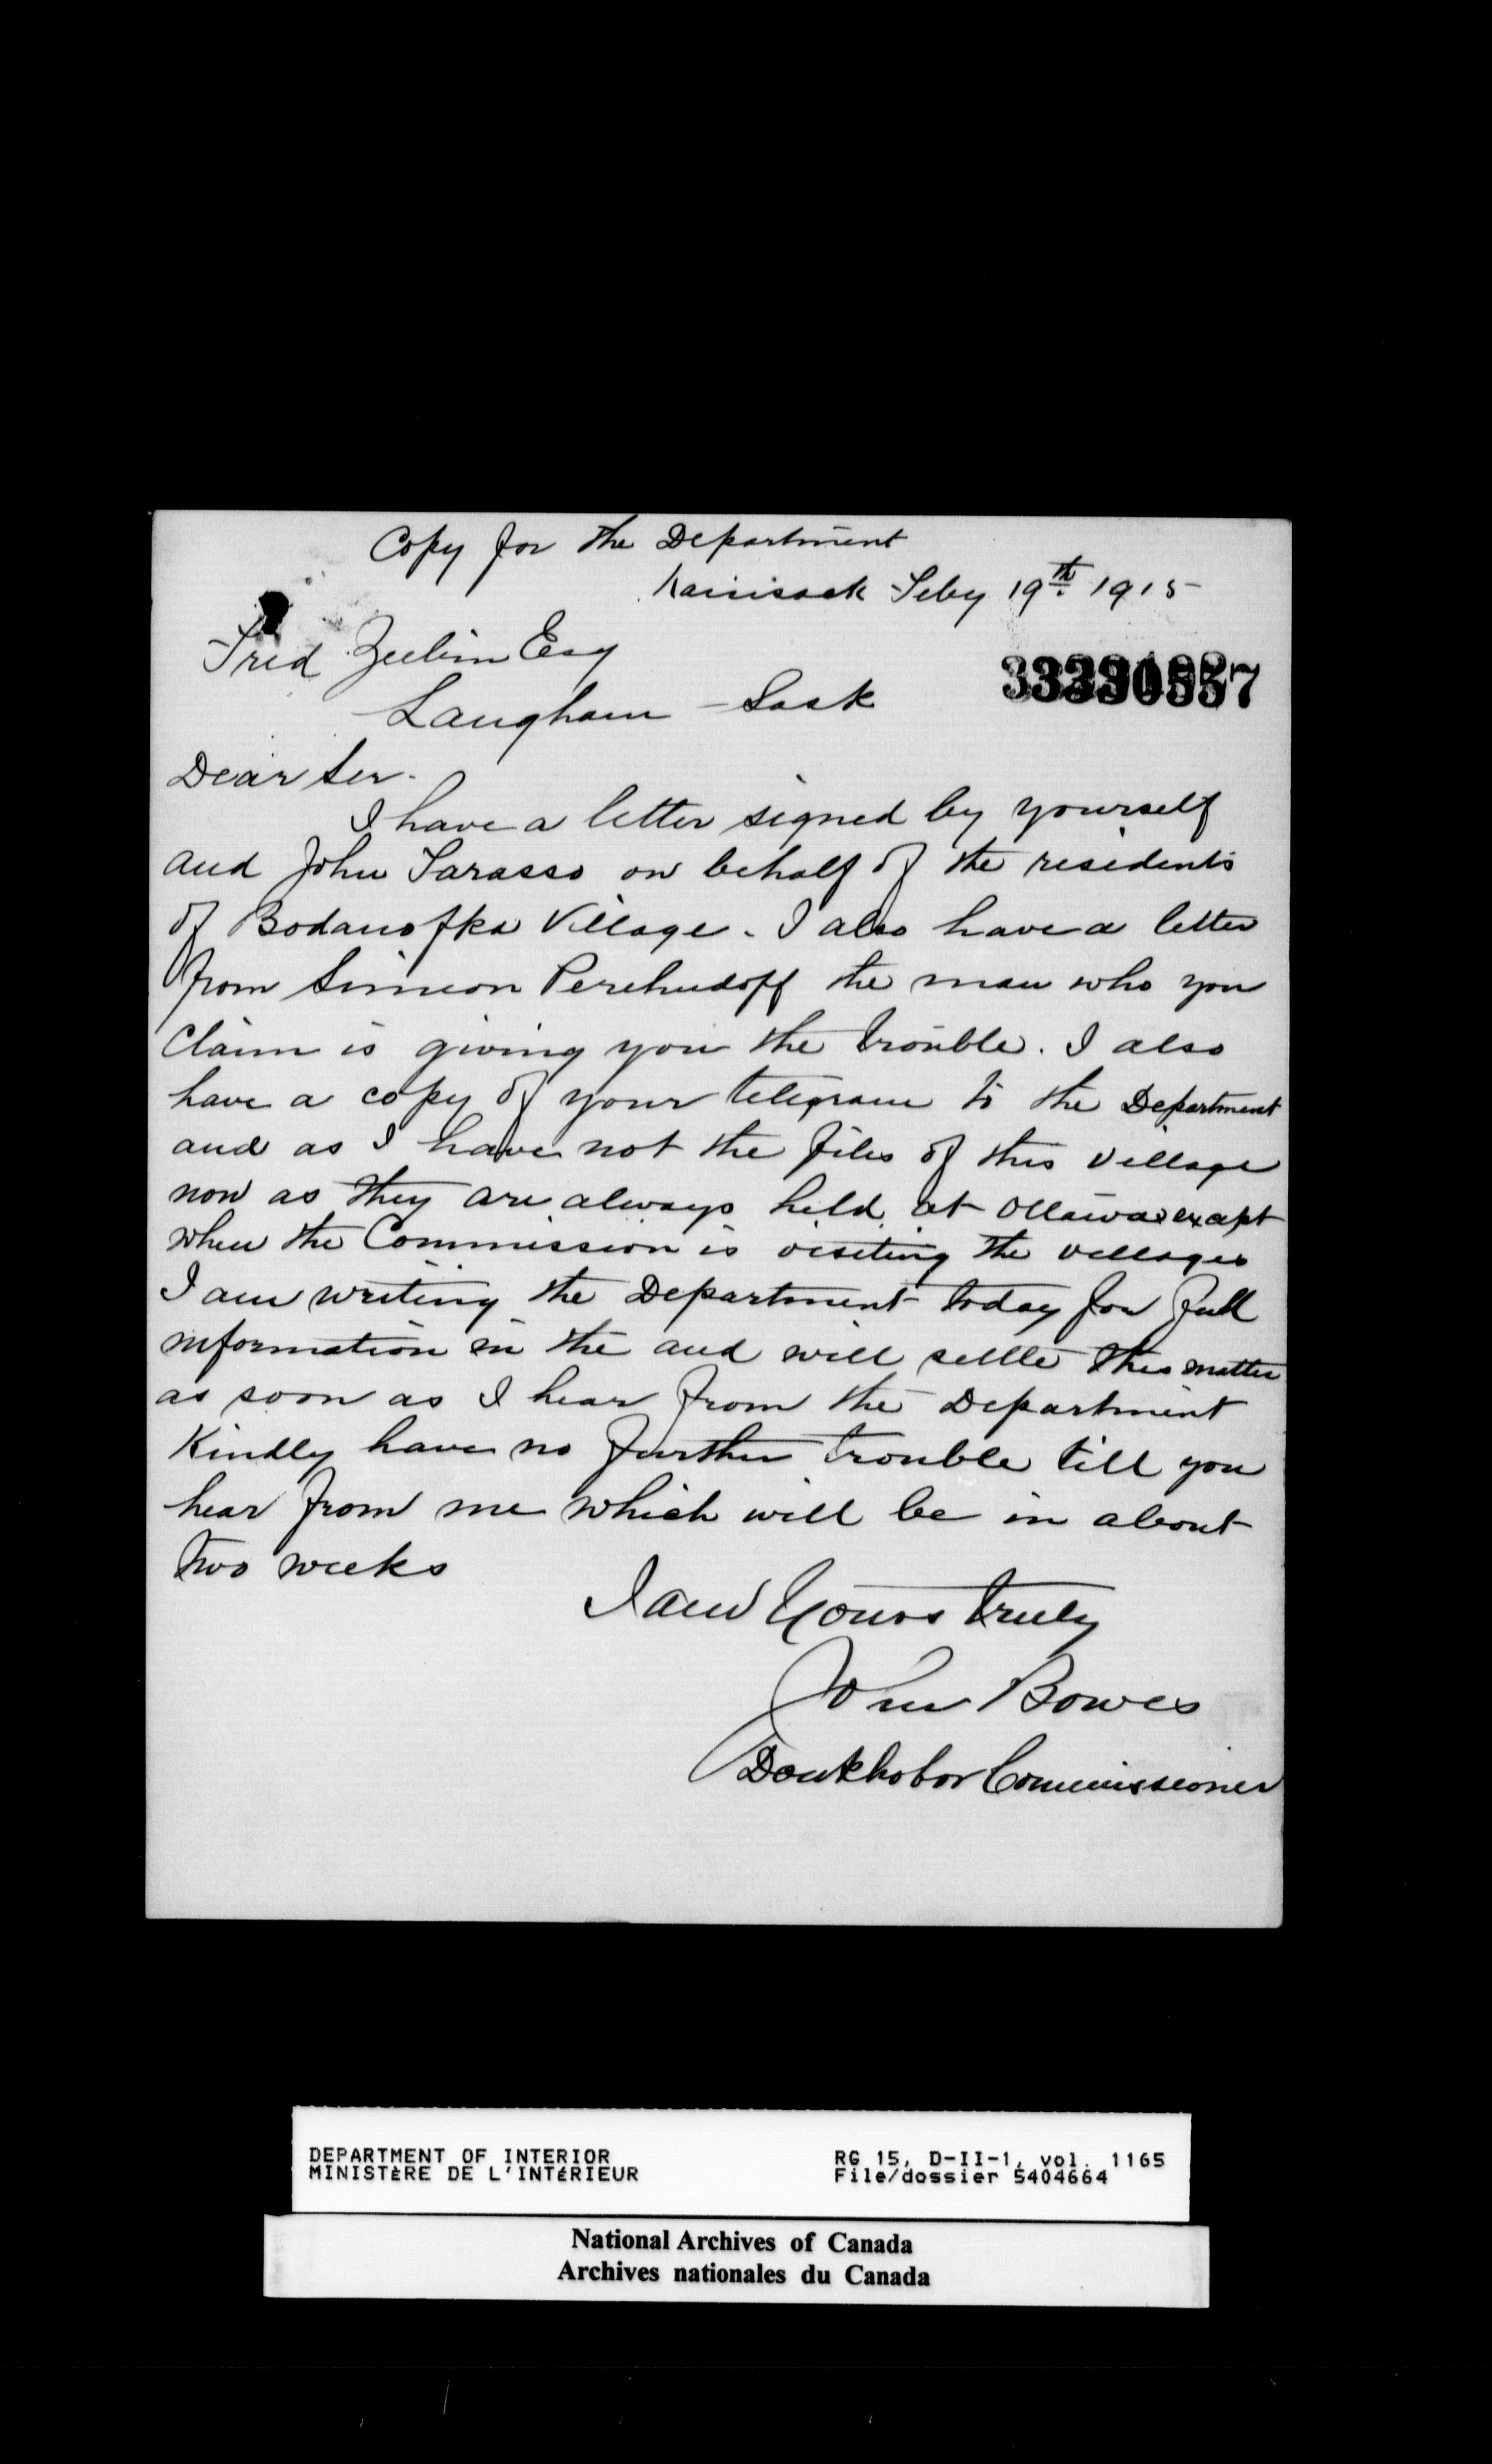 Copy for the Department
Kamsack Feby 19th 1915
Fred Zeebin Esq
Langham - Sask
Dear Sir.
I have a letter signed by yourself
and John Tarasso on behalf of the residents
of Bodanofka Village. I also have a letter
from Simeon Perehudoff the man who you
claim is giving you the trouble. I also
have a copy of your telegram to the Department
and as I have not the files of this village
now as they are always held at Ottawa except
when the Commission is visiting the villages
I am writing the Department today for full
information in the and will settle this matter
as soon as I hear from the Department
Kindly have no further trouble till you
hear from me which will be in about
two weeks
I am Yours truly
John Bowes
Doukhobor Commissioner
DEPARTMENT OF INTERIOR
MINISTÈRE DE L'INTÉRIEUR
RG 15, D-II-1, vol. 1165
File/dossier 5404664
National Archives of Canada
Archives nationales du Canada